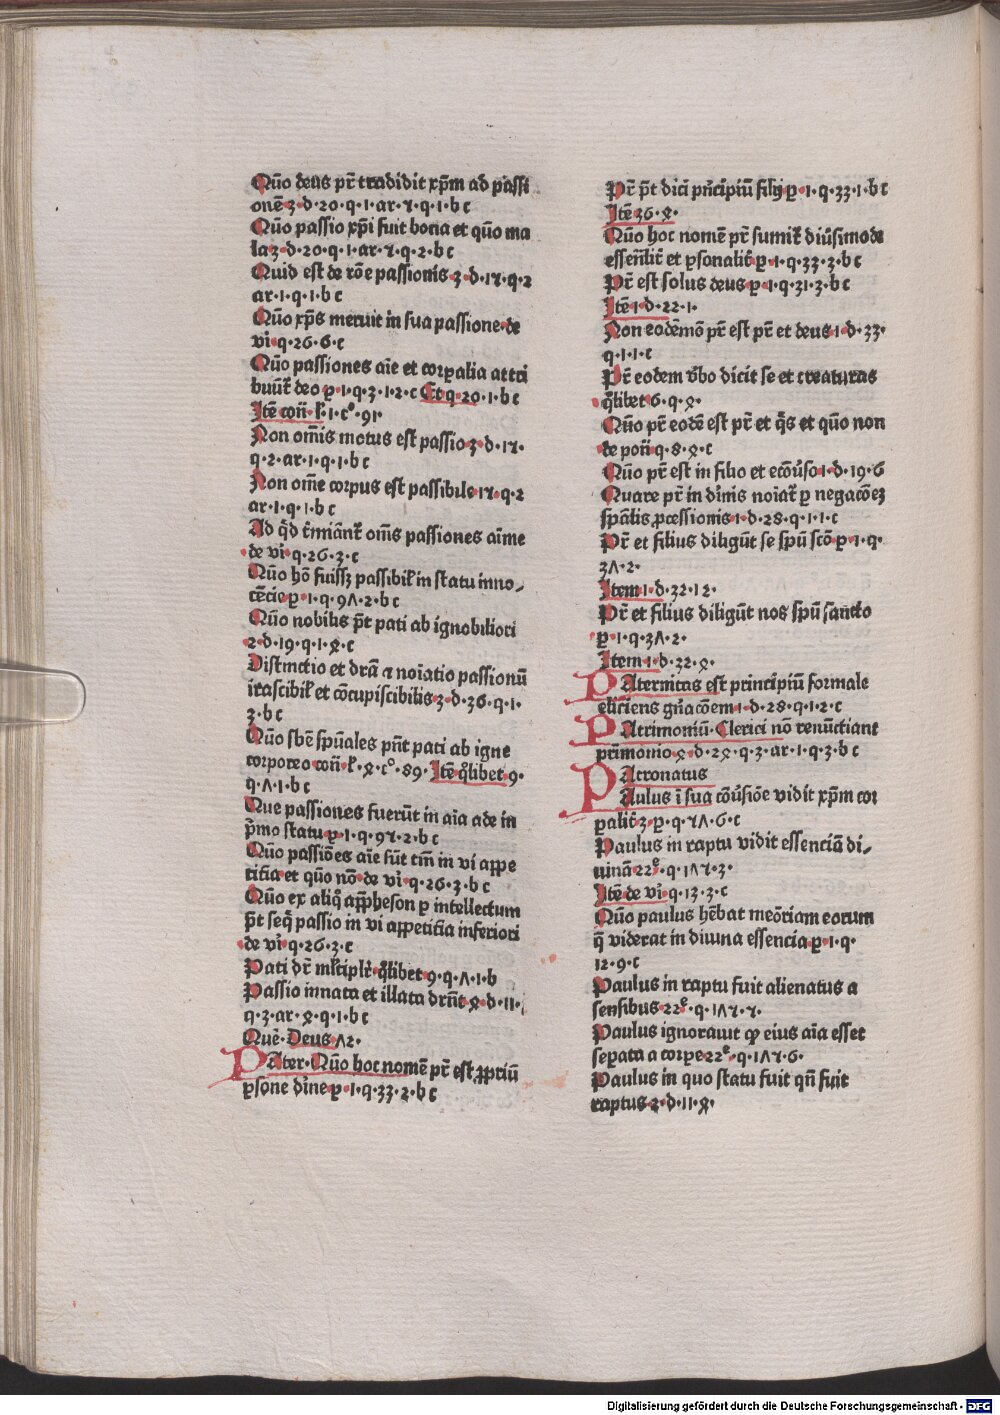 Quō deus pr̄ tradidit xp̄m ad passi
onē 3·d·20·q·1·ar·4·q·1·b c
Quō passio xp̄i fuit bona et quō ma
la 3·d·20·q·1·ar·4·q·2·b c
Quid est de rōe passionis·3·d·14·q·2
ar·1·q·1·b c
Quō xp̄s meruit in sua passione·de
vi·q·26·6·c
Quō passiones aīe et corꝑalia attri
buūt᷑ deo ꝑ·1·q·3·1·2·c Et q·20·1·b c
Itē con̄·l᷑·1·c°·91·
Non om̄is motus est passio 3·d·14·
q·2·ar·1·q·1·b c
Non om̄e corpus est passibile 14·q·2
ar·1·q·1·b c
Ad qd̄ t᷑miant᷑ om̄s passiones aīme
de vi·q·26·3·c
Quō hō fuissꝫ passibil᷑ in statu inno⸗
cēcie ꝑ·1·q·97·2·b c
Quō nobilis pt̄ pati ab ignobiliori
2·d·19·q·1·5·c
Distinctio et dr̄a ⁊ noīatio passionū
irascibil᷑ et cōcupiscibilis·3·d·26·q·1·
3·b c
Quō sbē spūales pn̄t pati ab igne
corporeo con̄·l᷑·4·c°·89· Itē qlibet 9·
q·7·1·b c
Que passiones fuerūt in aīa ade in
p̄mo statu ꝑ·1·q·94·2·b c
Quō passiōes aīe sūt tm̄ in vi appe
titia et quō nō·de vi·q·26·3·b c
Quō ex aliq̄ app̄heson ꝑ intellectum
pt̄ seq̄ passio in vi appetitia inferiori
de vi·q·26·3·c
Pati dr̄ ml᷑tiplr᷑·qlibet 9·q·7·1·b
Passio innata et illata drn̄t·5·d·11·
q·3·ar·5·q·1·b c
Quē·Deus 72·
PAter·Quō hoc nomē pr̄ est ꝓpriū
ꝑsone dīne ꝑ·1·q·33·2·b c
Pr̄ pt̄ dici prīcipiū filij ꝑ·1·q·33·1·b c
Itē 36·5·
Quō hoc nomē pr̄ sumit᷑ diūsimode
essenīlit᷑ et ꝑsonalit᷑ ꝑ·1·q·33·3·b c
Pr̄ est solus deus ꝑ·1·q·31·3·b c
Itē 1·d·22·1·
Non eodēmō pr̄ est pr̄ et deus 1·d·33·
q·1·1·c
Pr̄ eodem v̄bo dicit se et creaturas
qlibet 6·q·5·
Quō pr̄ eodē est pr̄ et q̄s et quō non
de pon̄ q·8·5·c
Quō pr̄ est in filio et ecōūso 1·d·19·6
Quare pr̄ in dīnis noīat᷑ ꝑ negacōeꝫ
spālis ꝓcessionis 1·d·28·q·1·1·c
Pr̄ et filius diligūt se spū scō ꝑ·1·q·
37·2·
Item·1·d·32·12·
Pr̄ et filius diligūt nos spū sancto
ꝑ·1·q·37·2·
Item·1·d·32·5·
PAternitas est principiū formale
eliciens gn̄acōem 1·d·28·q·1·2·c
PAtrimoniū·Clerici nō renūctiant
prīmonio 5·d·25·q·3·ar·1·q·3·b c
PAtronatus
PAulus ī sua cōūsiōe vidit xp̄m cor
ꝑalit᷑ 3·ꝑ·q·47·6·c
Paulus in raptu vidit essenciā di⸗
uinā 22ᵉ·q·174·3·
Itē de vi·q·13·3·c
Quō paulus hēbat meōriam eorum
q̄ viderat in diuina essencia ꝑ·1·q·
12·9·c
Paulus in raptu fuit alienatus a
sensibus 22ᵉ·q·174·4·
Paulus ignorauit ꝙ eius aīa esset
seꝑata a corpe 22ᵉ·q·174·6·
Paulus in quo statu fuit qn̄ fuit
raptus 2·d·11·5·
Digitalisierung gefördert durch die Deutsche Forschungsgemeinschaft - DFG